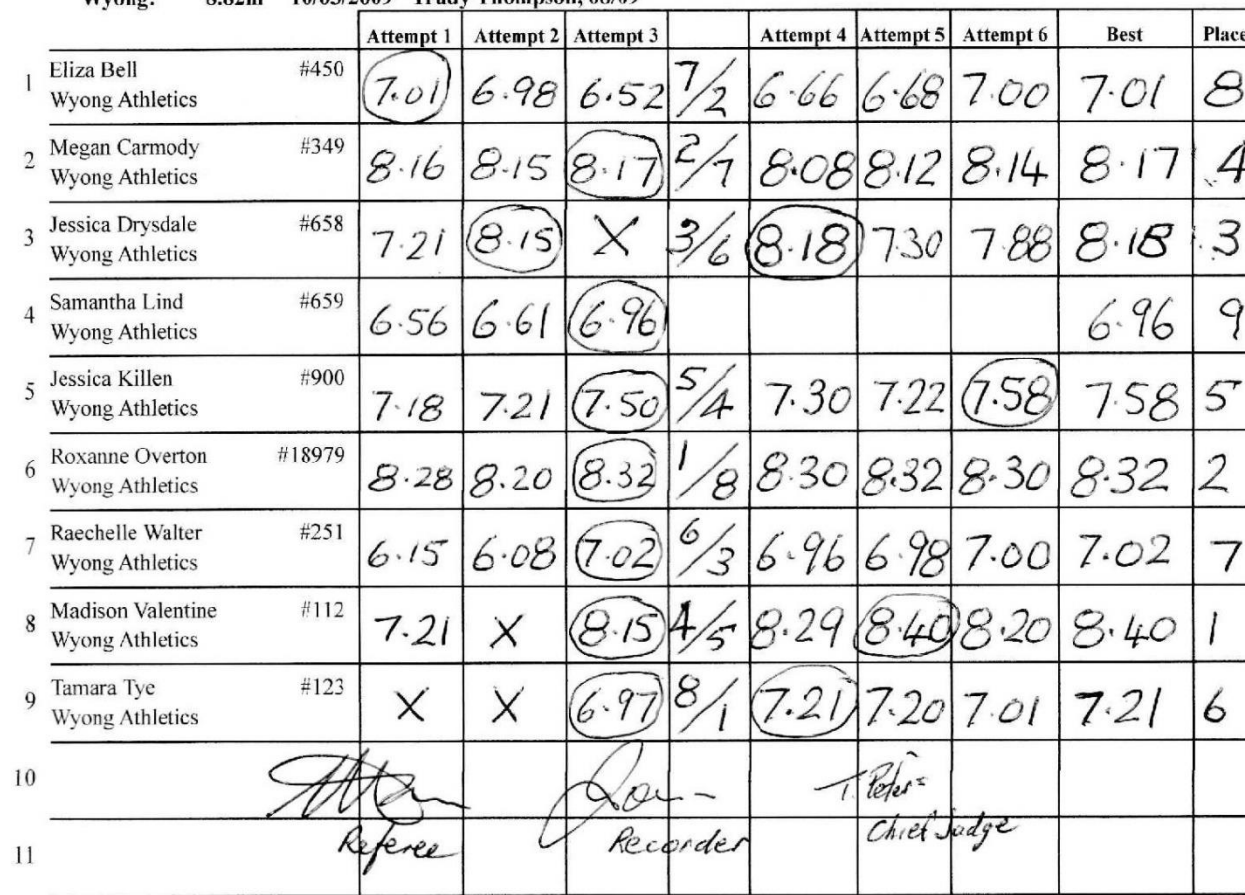 Wyong: 8.82m 10/05/2009 Trudy Thompson, 08/09
Attempt 1 Attempt 2 Attempt 3 Attempt 4 Attempt 5 Attempt 6 Best Place
1 Eliza Bell #450
Wyong Athletics
7.01 6.98 6.52 7/2 6.66 6.68 7.00 7.01 8
2 Megan Carmody #349
Wyong Athletics
8.16 8.15 8.17 2/7 8.08 8.12 8.14 8.17 4
3 Jessica Drysdale #658
Wyong Athletics
7.21 8.15 X 3/6 8.18 7.30 7.88 8.18 3
4 Samantha Lind #659
Wyong Athletics
6.56 6.61 6.96 6.96 9
5 Jessica Killen #900
Wyong Athletics
7.18 7.21 7.50 5/4 7.30 7.22 7.58 7.58 5
6 Roxanne Overton #18979
Wyong Athletics
8.28 8.20 8.32 1/8 8.30 8.32 8.30 8.32 2
7 Raechelle Walter #251
Wyong Athletics
6.15 6.08 7.02 6/3 6.96 6.98 7.00 7.02 7
8 Madison Valentine #112
Wyong Athletics
7.21 X 8.15 4/5 8.29 8.40 8.20 8.40 1
9 Tamara Tye #123
Wyong Athletics
X X 6.97 8/1 7.21 7.20 7.01 7.21 6
10 T. Peters
Referee Recorder Chief Judge
11